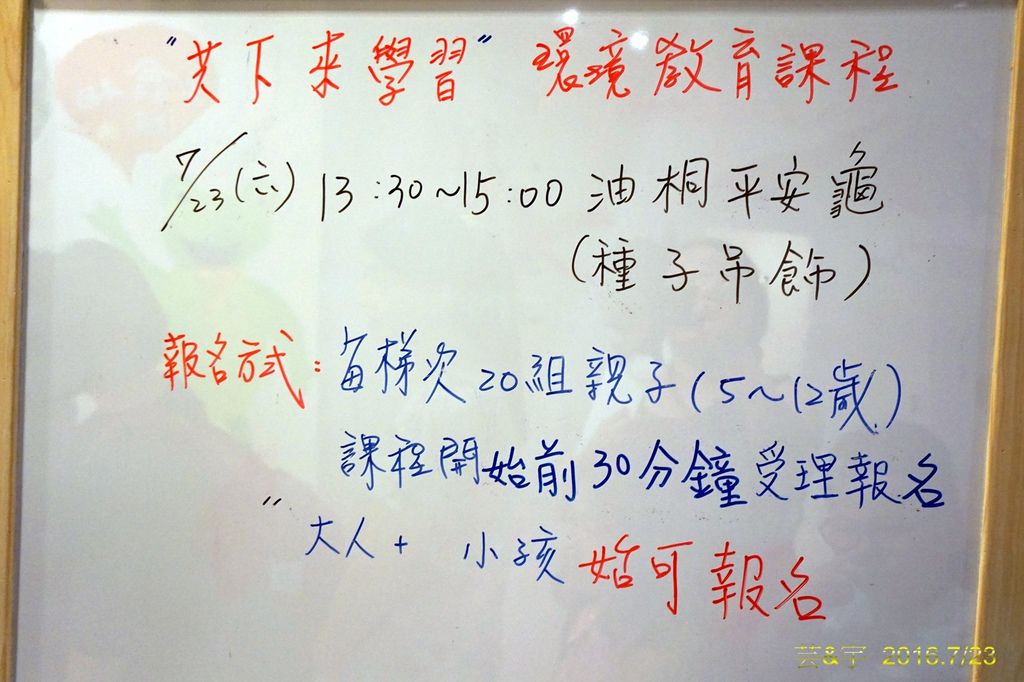 "芡下來學習" 環境教育課程
7/23(六) 13:30~15:00 油桐平安龜
(種子吊飾)
報名方式: 每梯次20組親子(5~12歲)
課程開始前30分鐘受理報名
" 大人+ 小孩 始可報名
芸&宇 2016.7/23